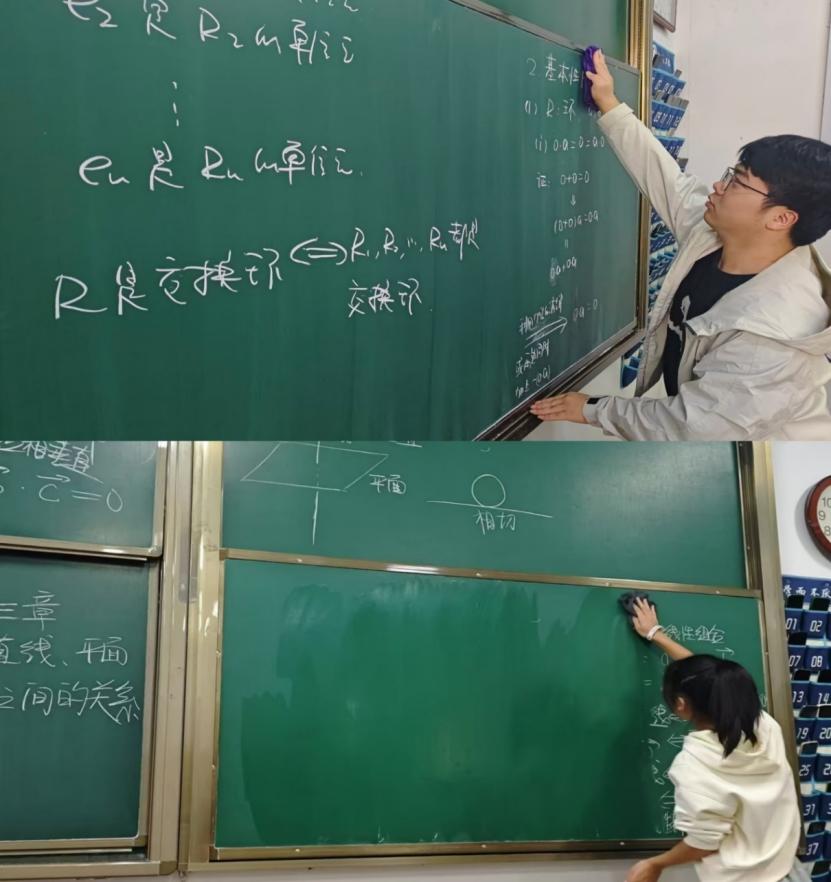 e₂是R₂的单位元
⋮
eₙ是Rₙ的单位元.
R是交换环⇔R₁,R₂,…,Rₙ都是
交换环.
2.基本性
(1) R:环
(i) 0·a=0=a·0
证: 0+0=0
⇓
(0+0)a=0a
=
0a+0a
0a=0
相垂直
c⃗=0
三章
直线、平面
之间的关系
平面
相切
线性组合
10
9
8
01 02
07 08
13 14
19 20
25 26
31
37